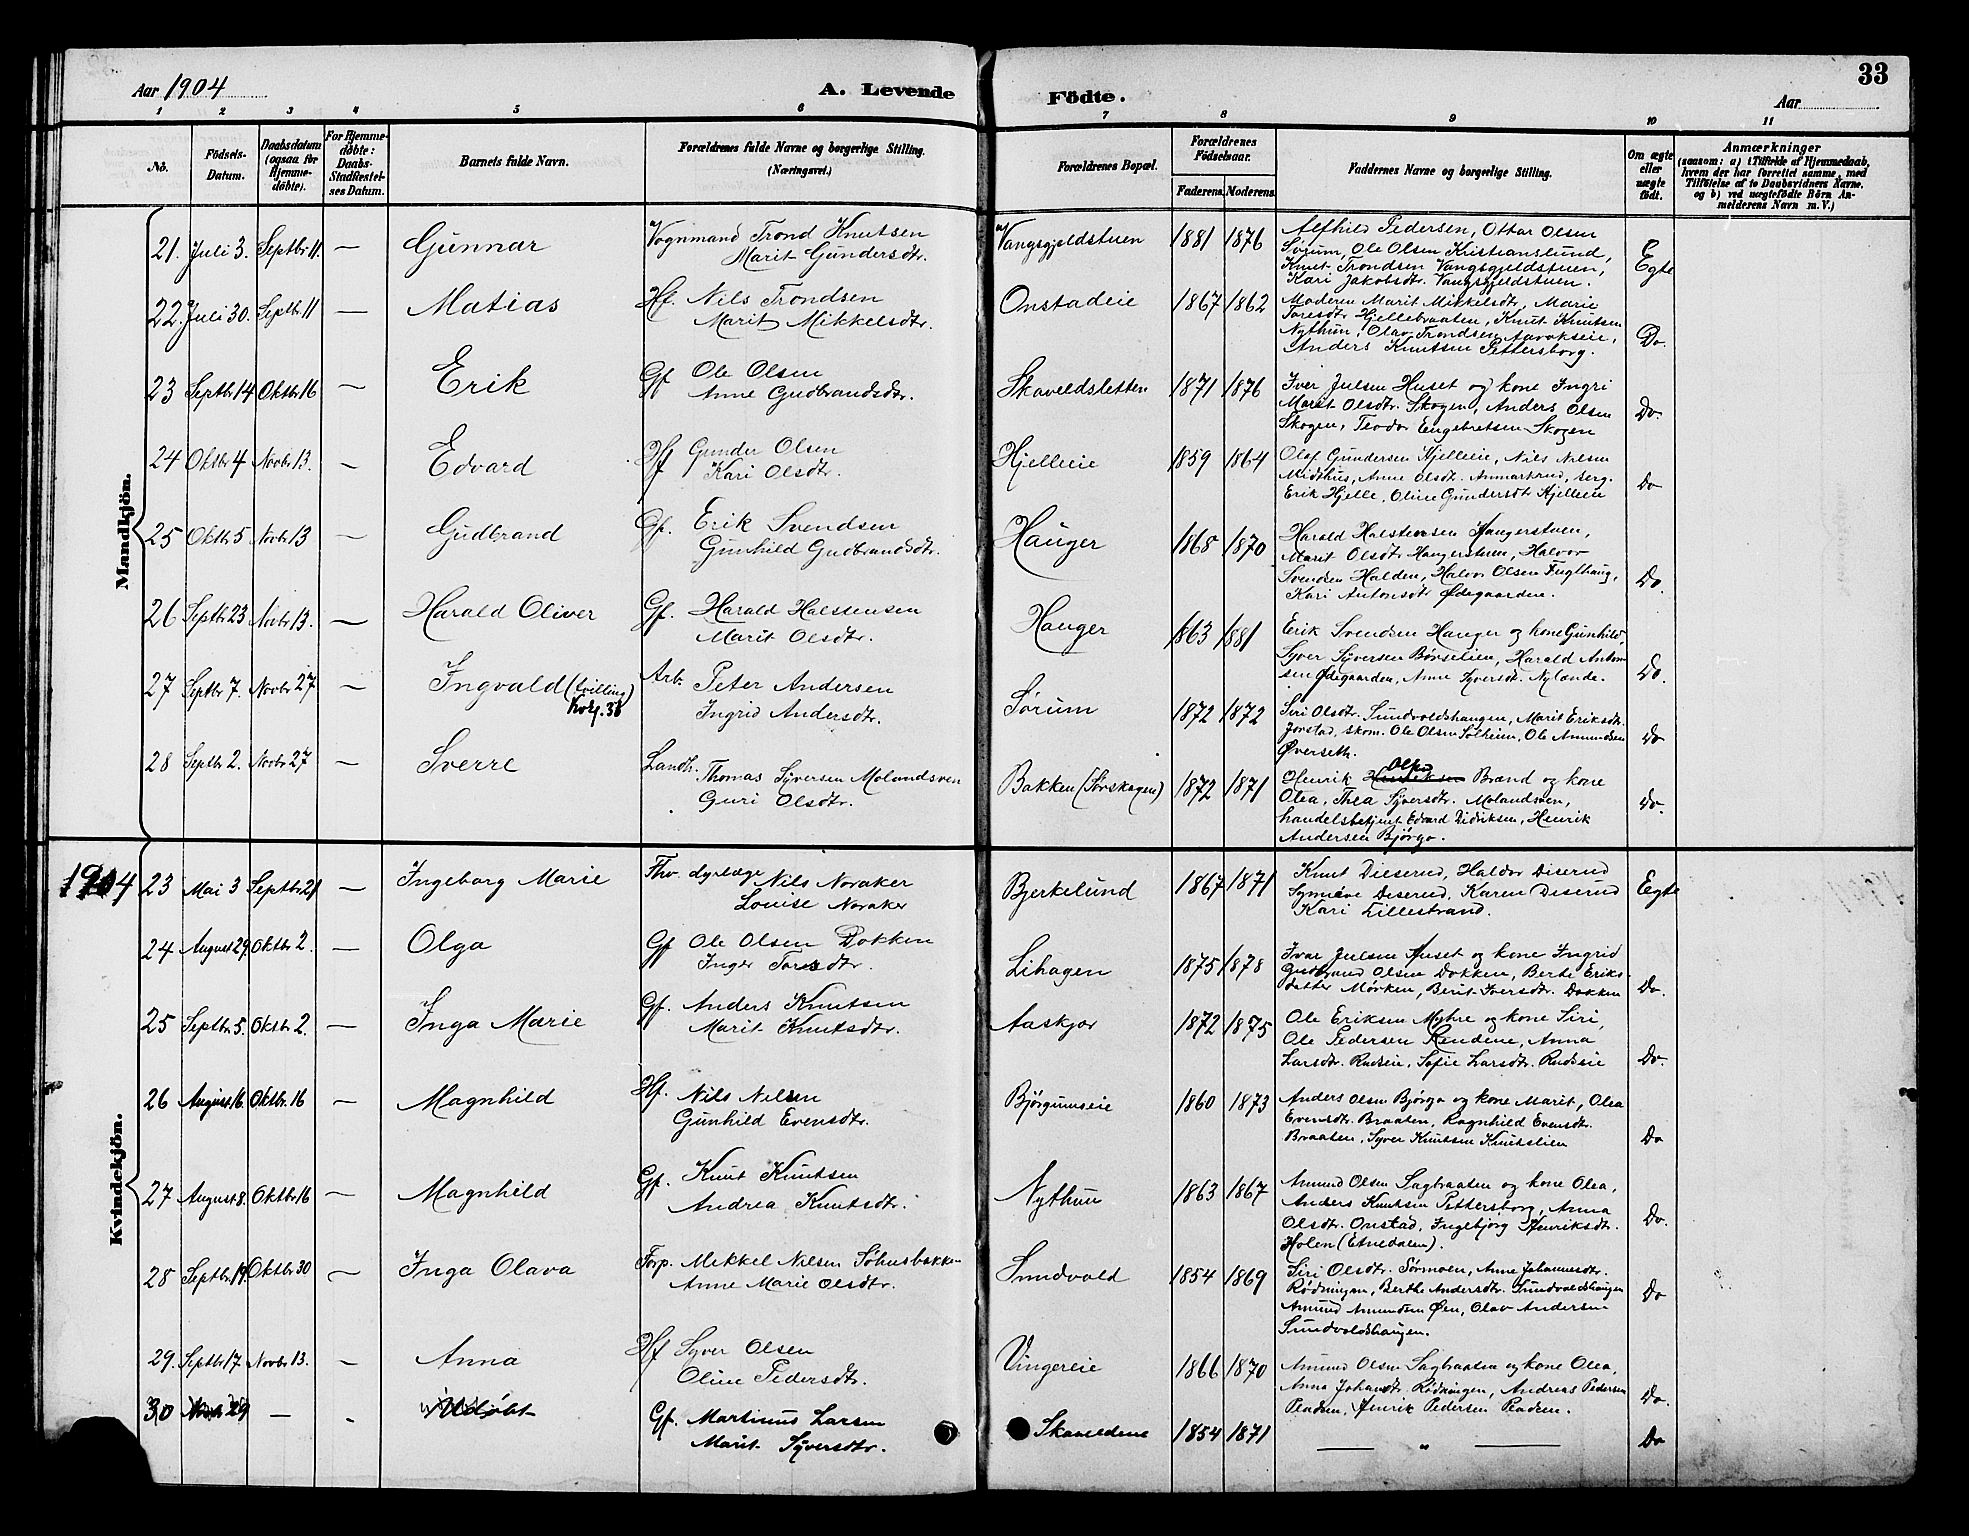 33
Aar 1904
A. Levende
Födte.
Aar
1 2 3 4 5 6 7 8 9 10 11
No.
Födsels-
Datum.
Daabsdatum
(ogsaa for
Hjemme-
döbte).
For Hjemme-
döbte:
Daabs-
Stadfæstel-
ses Datum.
Barnets fulde Navn.
Forældrenes fulde Navne og borgerlige Stilling.
(Næringsvei.)
Forældrenes Bopæl.
Forældrenes
Födselsaar.
Faderens. Moderens.
Faddernes Navne og borgerlige Stilling.
Om ægte
eller
uægte
födt.
Anmærkninger
(saasom: a) i Tilfælde af Hjemmedaab,
hvem der har forrettet samme, med
Tilföielse af to Daabsvidners Navne,
og b) ved uægtefödte Börn An-
melderens Navn m. V.)
Mandkjön.
21. Juli 3. Septbr 11. — Gunnar
Vognmand Trond Knutsen
Marit Gundersdtr.
Vangsgjeldstuen 1881 1876
Alfhild Pedersen, Ottar Olsen
Sørum, Ole Olsen Kristianslund,
Knut Trondsen Vangsgjeldstuen,
Kari Jakobsdtr. Vangsgjeldstuen.
Egte
22. Juli 30. Septbr. 11 — Matias
Hf. Nils Trondsen
Marit Mikkelsdtr.
Onstadeie 1867 1862
Moderen Marit Mikkelsdtr, Marie
Toresdtr Hjellebraaten, Knut Knutsen
Nythun, Olav Trondsen
Anders Knutsen Pettersborg.
Do.
23 Septbr 14 Oktbr 16 — Erik
Gf Ole Olsen
Anne Gudbrandsdtr.
Skaveldsletten 1871 1876
Iver Julsen Huset og kone Ingri
Marit Olsdtr. Skogen, Anders Olsen
Skogen, Teodor Engebretsen Skogen
Do.
24 Oktbr 4 Novbr 13. — Edvard
Hf Gunder Olsen
Kari Olsdtr.
Hjelleie 1859 1864
Olaf Gundersen Hjelleie, Nils Nilsen
Midthus, Anne Olsdt. Anmarkrud, serg.
Erik Hjelle, Oline Gundersdt. Hjelleie
Do
25 Oktbr 5 Novbr 13 — Gudbrand
Gf. Erik Svendsen
Gunhild Gudbrandsdtr.
Hauger 1868 1870
Harald Halstensen Haugerstuen,
Marit Olsdtr Haugerstuen, Halvor
Svendsen Halden, Halvor Olsen Fuglhaug,
Kari Antonsdtr Ødegaarden.
Do.
26 Septbr 23 Novbr 13. — Harald Oliver
Gf. Harald Halstensen
Marit Olsdtr.
Hauger 1863 1881
Erik Svendsen Hauger og kone Gunhild,
Syver Syversen Børselien, Harald Anton-
sen Ødegaarden, Anne Syversdt. Nylænde.
Do.
27 Septbr 7. Novbr 27 — Ingvald (tvilling)
kvkj. 38
Arb. Peter Andersen
Ingrid Andersdtr.
Sørum 1872 1872
Siri Olsdtr. Sundvoldshaugen, Marit Eriksdtr.
Jorstad, skom. Ole Olsen Solheim, Ole Amundsen
Øverseth.
Do
28 Septbr 2. Novbr 27 — Sverre
Landh. Thomas Syversen Molandsven
Guri Olsdtr.
Bakken (Sørskogen) 1872 1871
Henrik Olsen Brænd og kone
Olea, Thea Syversdtr. Molandsven,
handelsbetjent Edvard Didriksen, Henrik
Andersen Bjørgo.
Do.
1904
Kvindekjön.
23 Mai 3 Septbr 21 — Ingeborg Marie
Fhv. dyrlæge Nils Noraker
Louise Noraker
Bjerkelund 1867 1871
Knut Dieserud, Haldor Diserud
Synnøve Diserud, Karen Diserud
Kari Lillestrand.
Egte
24 August 29. Oktbr 2. — Olga
Gf Ole Olsen Dokken
Inger Toresdtr.
Lihagen 1875 1878
Ivar Julsen Huset og kone Ingrid
Gudbrand Olsen Dokken, Berte Eriks-
datter Mørken, Berit Iversdtr. Dokken
Do.
25 Septbr 5. Oktbr 2. — Inga Marie
Gf. Anders Knutsen
Marit Knutsdtr.
Aaskjær 1872 1875
Ole Eriksen Myhre og kone Siri,
Ole Pedersen Rendene, Anna
Larsdtr. Rudseie, Sofie Larsdtr. Rudseie
Do.
26 August 16. Oktbr 16 — Magnhild
Hf. Nils Nilsen
Gunhild Evensdtr.
Bjørgumseie 1860 1873
Anders Olsen Bjørgo og kone Marit, Olea
Evensdtr. Braaten, Ragnhild Evensdtr.
Braaten, Syver Knutsen Knutslien
Do
27 August 8. Oktbr 16 — Magnhild
Gf. Knut Knutsen
Andrea Knutsdtr.
Nythun 1863 1867
Amund Olsen Sagbraaten og kone Olea,
Anders Knutsen Pettersborg, Anna
Olsdtr. Onstad, Ingebjørg Henriksdtr.
Holen (Etnedalen).
Do.
28 Septbr 19 Oktbr 30 — Inga Olava
Forp. Mikkel Nilsen Søhusbakken
Anne Marie Olsdtr.
Sundvold 1854 1869
Siri Olsdtr. Sørmoen, Anne Johannesdtr.
Rødningen, Berthe Andersdtr. Sundvoldshaugen
Amund Amundsen Øen, Olav Andersen
Sundvoldshaugen.
Do
29. Septbr 17. Novbr 13. — Anna
Hf Syver Olsen
Oline Pedersdtr.
Vingereie 1866 1870
Amund Olsen Sagbraaten og kone Olea,
Anna Johansdtr. Rødningen, Andreas Pedersen
Pladsen, Henrik Pedersen Pladsen.
Do.
30 — Udøbt
Gf. Martinus Larsen
Marit Syversdtr.
Skaveldene 1854 1871
— " —
Do